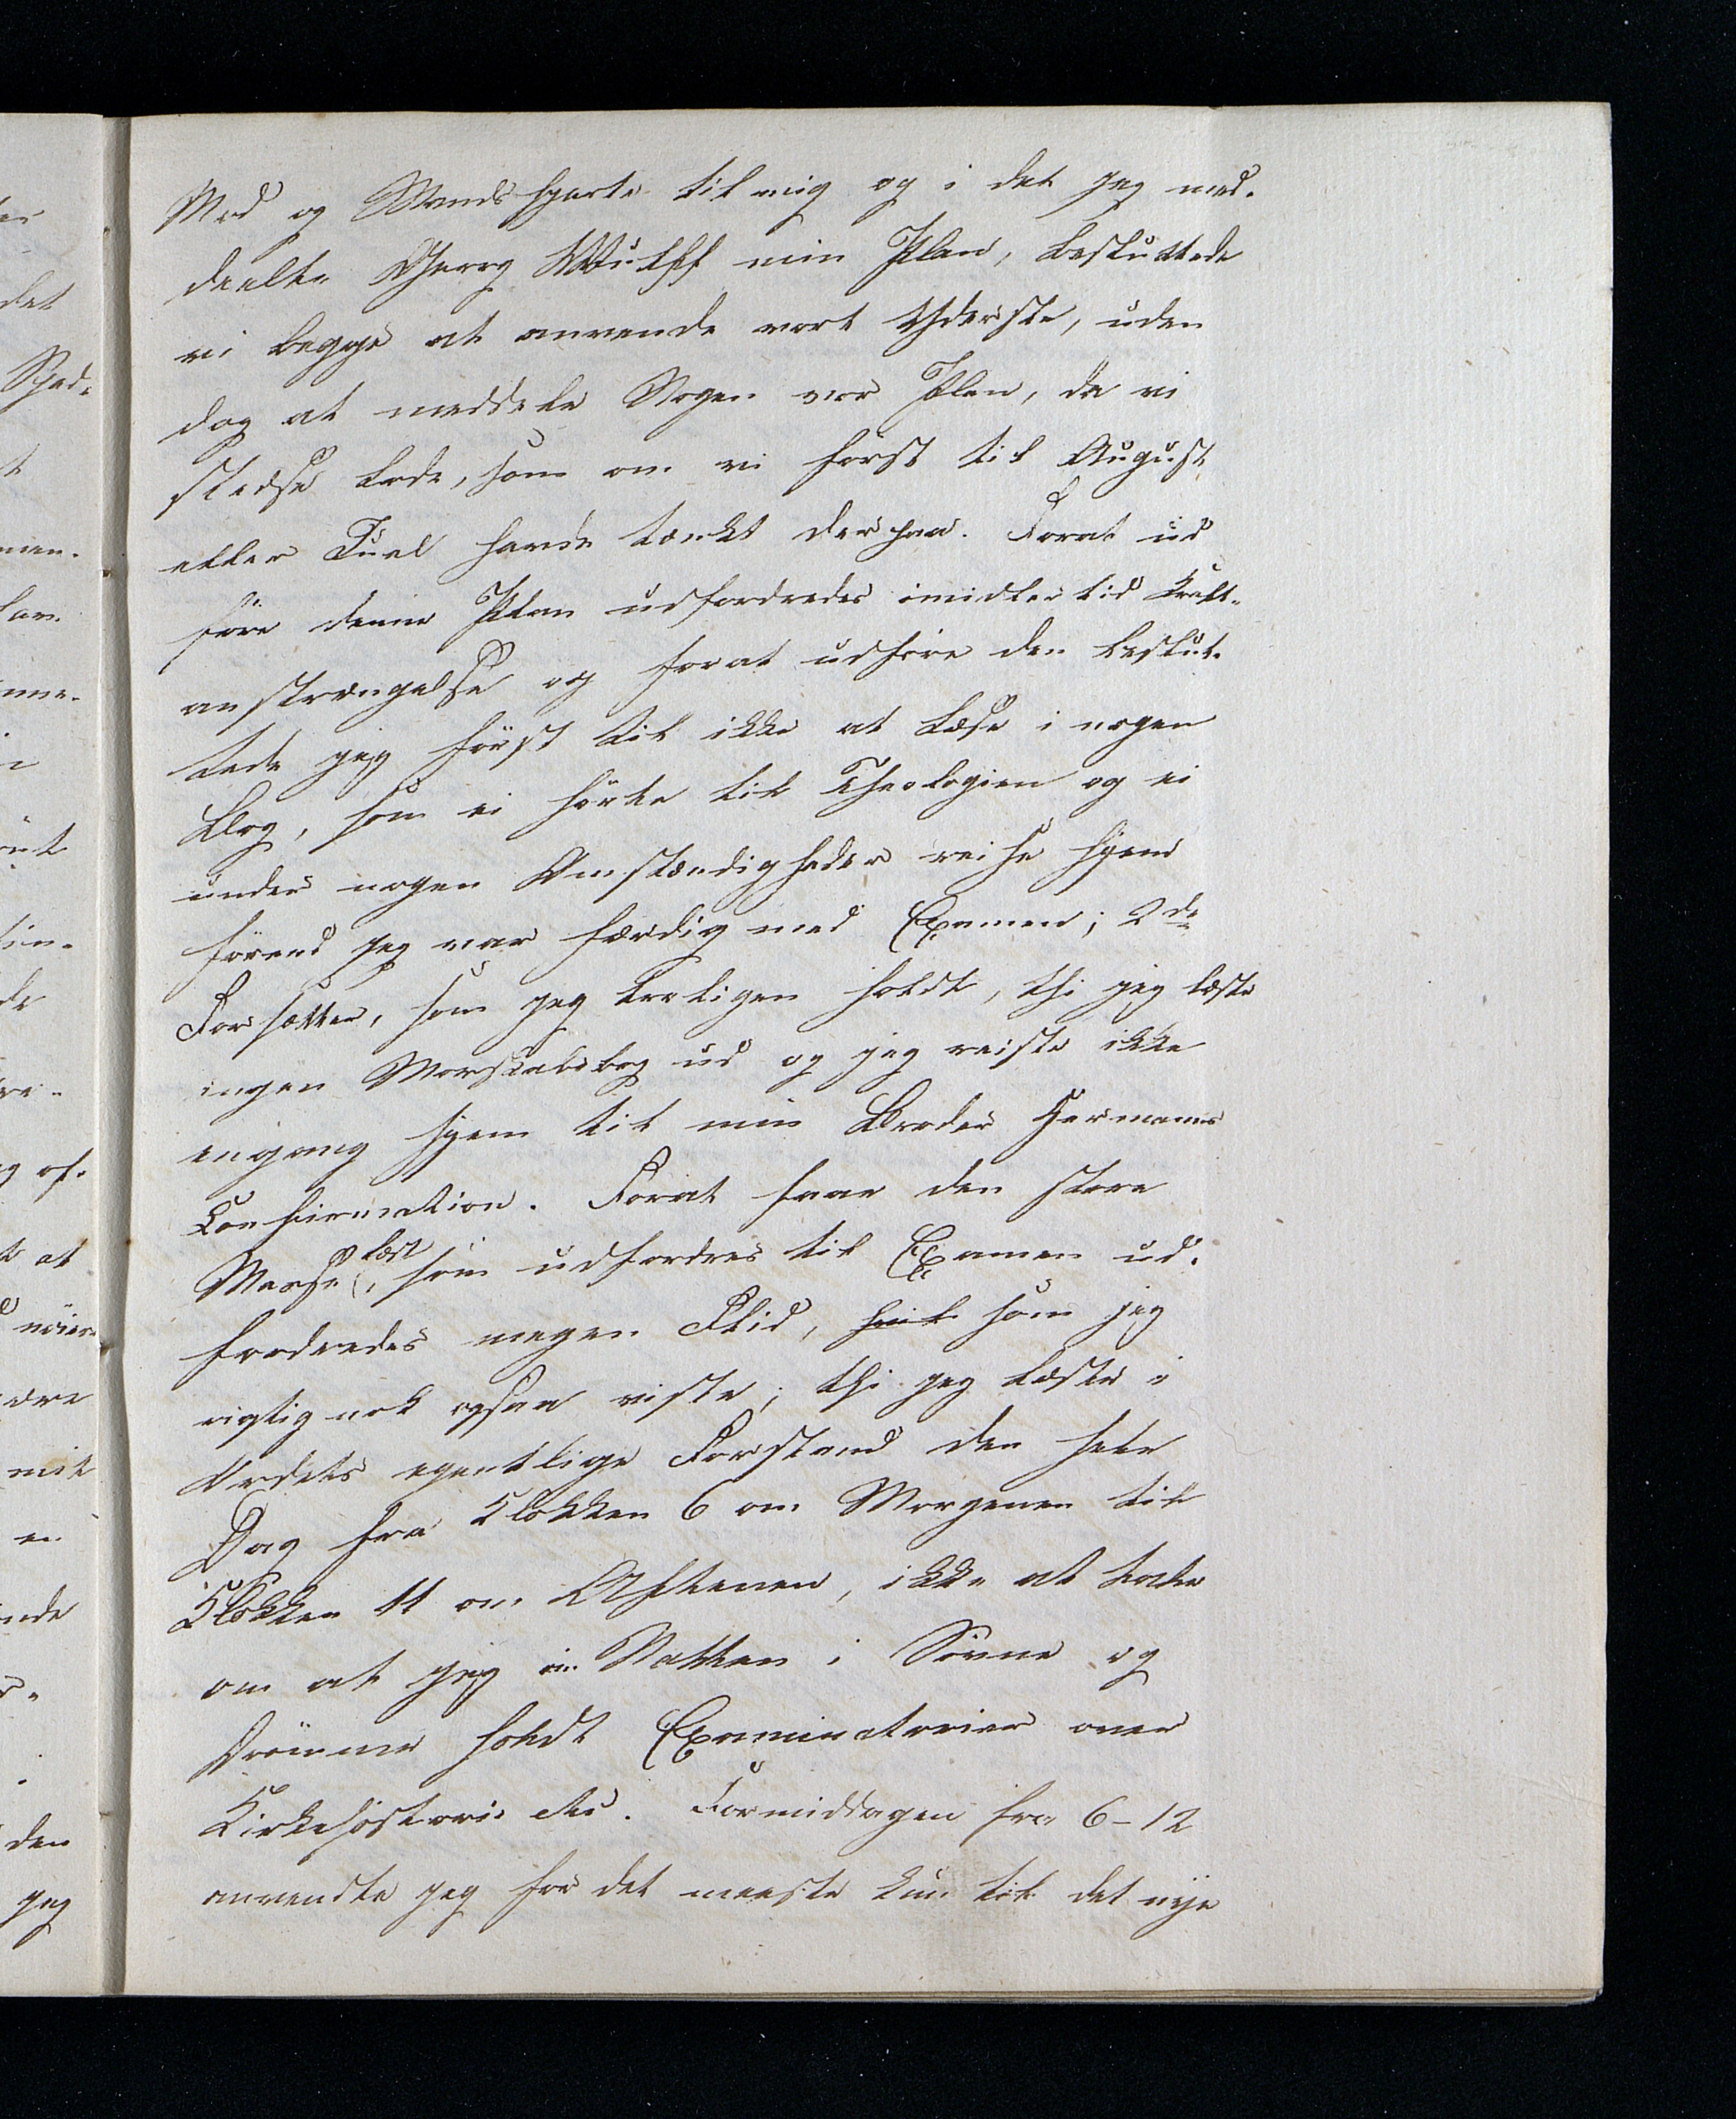 Mod og Mands Hjerte til mig og i det jeg med-
deelte Georg Wulff min Plan, besluttede
vi begge at anvende vort Yderste, uden
dog at meddele Nogen vor Plan, da vi
stedse lode, som om vi först til August
eller Juul havde tænkt derpaa. Forat ud
före denne Plan udfordredes imidlertid Kraft-
anstrængelse og forat udföre den beslut-
tede jeg först til ikke at læse i nogen
Bog, som ei hörte til Theologien og ei
under nogen Omstændigheder reise hjem
förend jeg var færdig med Examen; 2de
Forsætter, som jeg troligen holdt, thi jeg læste
ingen Morskabsbog ud og jeg reiste ikke
engang hjem til min Broder Hermanns
Confirmation. Forat faae den store
Masse læst, som udfordres til Examen ud-
fordredes megen Flid, som jeg
rigtignok ogsaa viste; thi jeg læste i
Ordets egentlige Forstand den hele
Dag fra Klokken 6 om Morgenen til
Klokken 11 om Aftenen, ikke at tale
om at jeg om Natten i Sövne og
Drömme holdt Examinatorier over
Kirkehistorie etc. Formiddagen fra 6-12
anvendte jeg for det meeste kun til det nye